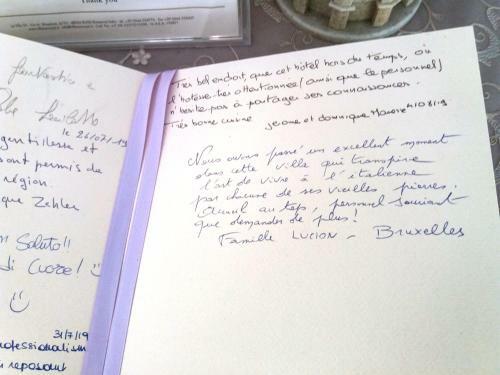 Thank you
fantastic
le 26/07/19
gentillesse et
sont permis de
région.
que Zehler
Saluto!!
di Cuore!
31/7/19
professionalism
reposant
Très bel endroit, que cet hôtel hors du temps, où
l'hôtesse très attentionnée (ainsi que le personnel)
n'hésite pas à partager ses connaissances.
Très bonne cuisine jeanne et dominique
Nous avons passé un excellent moment
dans cette ville qui transpire
l'art de vivre à l'italienne
par chacune de ses vieilles pierres.
Accueil au top, personnel souriant
que demander de plus!
Famille LUCION - Bruxelles